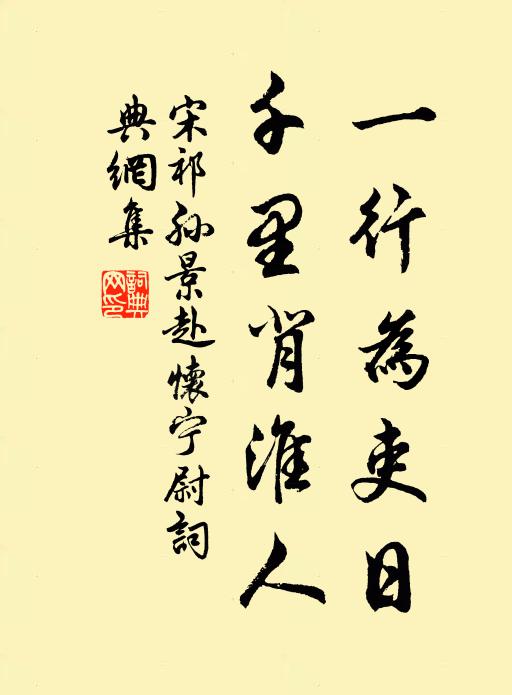 一行為吏日
千里背淮人
宋祁孫景赴懷宁尉詞
典網集
詞典
网印